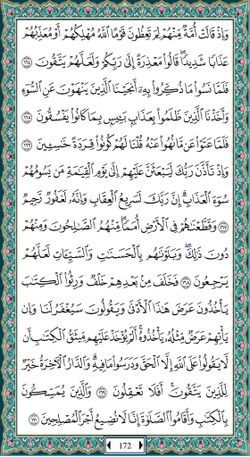 وَإِذْ قَالَتْ أُمَّةٌ مِّنْهُمْ لِمَ تَعِظُونَ قَوْمًا ٱللَّهُ مُهْلِكُهُمْ أَوْ مُعَذِّبُهُمْ
عَذَابًا شَدِيدًا ۖ قَالُوا۟ مَعْذِرَةً إِلَىٰ رَبِّكُمْ وَلَعَلَّهُمْ يَتَّقُونَ ١٦٤
فَلَمَّا نَسُوا۟ مَا ذُكِّرُوا۟ بِهِۦٓ أَنجَيْنَا ٱلَّذِينَ يَنْهَوْنَ عَنِ ٱلسُّوٓءِ
وَأَخَذْنَا ٱلَّذِينَ ظَلَمُوا۟ بِعَذَابٍۭ بَـِٔيسٍۭ بِمَا كَانُوا۟ يَفْسُقُونَ ١٦٥
فَلَمَّا عَتَوْا۟ عَن مَّا نُهُوا۟ عَنْهُ قُلْنَا لَهُمْ كُونُوا۟ قِرَدَةً خَـٰسِـِٔينَ ١٦٦
وَإِذْ تَأَذَّنَ رَبُّكَ لَيَبْعَثَنَّ عَلَيْهِمْ إِلَىٰ يَوْمِ ٱلْقِيَـٰمَةِ مَن يَسُومُهُمْ
سُوٓءَ ٱلْعَذَابِ ۗ إِنَّ رَبَّكَ لَسَرِيعُ ٱلْعِقَابِ ۖ وَإِنَّهُۥ لَغَفُورٌ رَّحِيمٌ
١٦٧ وَقَطَّعْنَـٰهُمْ فِى ٱلْأَرْضِ أُمَمًا ۖ مِّنْهُمُ ٱلصَّـٰلِحُونَ وَمِنْهُمْ
دُونَ ذَٰلِكَ ۖ وَبَلَوْنَـٰهُم بِٱلْحَسَنَـٰتِ وَٱلسَّيِّـَٔاتِ لَعَلَّهُمْ
يَرْجِعُونَ ١٦٨ فَخَلَفَ مِنۢ بَعْدِهِمْ خَلْفٌ وَرِثُوا۟ ٱلْكِتَـٰبَ
يَأْخُذُونَ عَرَضَ هَـٰذَا ٱلْأَدْنَىٰ وَيَقُولُونَ سَيُغْفَرُ لَنَا وَإِن
يَأْتِهِمْ عَرَضٌ مِّثْلُهُۥ يَأْخُذُوهُ ۚ أَلَمْ يُؤْخَذْ عَلَيْهِم مِّيثَـٰقُ ٱلْكِتَـٰبِ أَن
لَّا يَقُولُوا۟ عَلَى ٱللَّهِ إِلَّا ٱلْحَقَّ وَدَرَسُوا۟ مَا فِيهِ ۗ وَٱلدَّارُ ٱلْـَٔاخِرَةُ خَيْرٌ
لِّلَّذِينَ يَتَّقُونَ ۗ أَفَلَا تَعْقِلُونَ ١٦٩ وَٱلَّذِينَ يُمَسِّكُونَ
بِٱلْكِتَـٰبِ وَأَقَامُوا۟ ٱلصَّلَوٰةَ إِنَّا لَا نُضِيعُ أَجْرَ ٱلْمُصْلِحِينَ ١٧٠
172